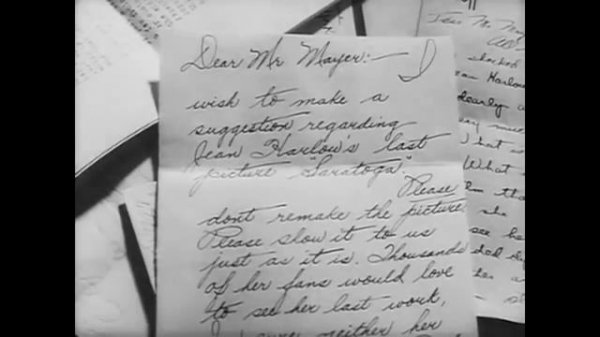 Dear Mr Mayer:— I
wish to make a
suggestion regarding
Jean Harlow's last
picture "Saratoga".
Please
dont remake the picture.
Please show it to us
just as it is. Thousands
of her fans would love
to see her last work,
sure neither her
Dear Mr. May
shocked
ean Harlow
dearly
What
she
see he